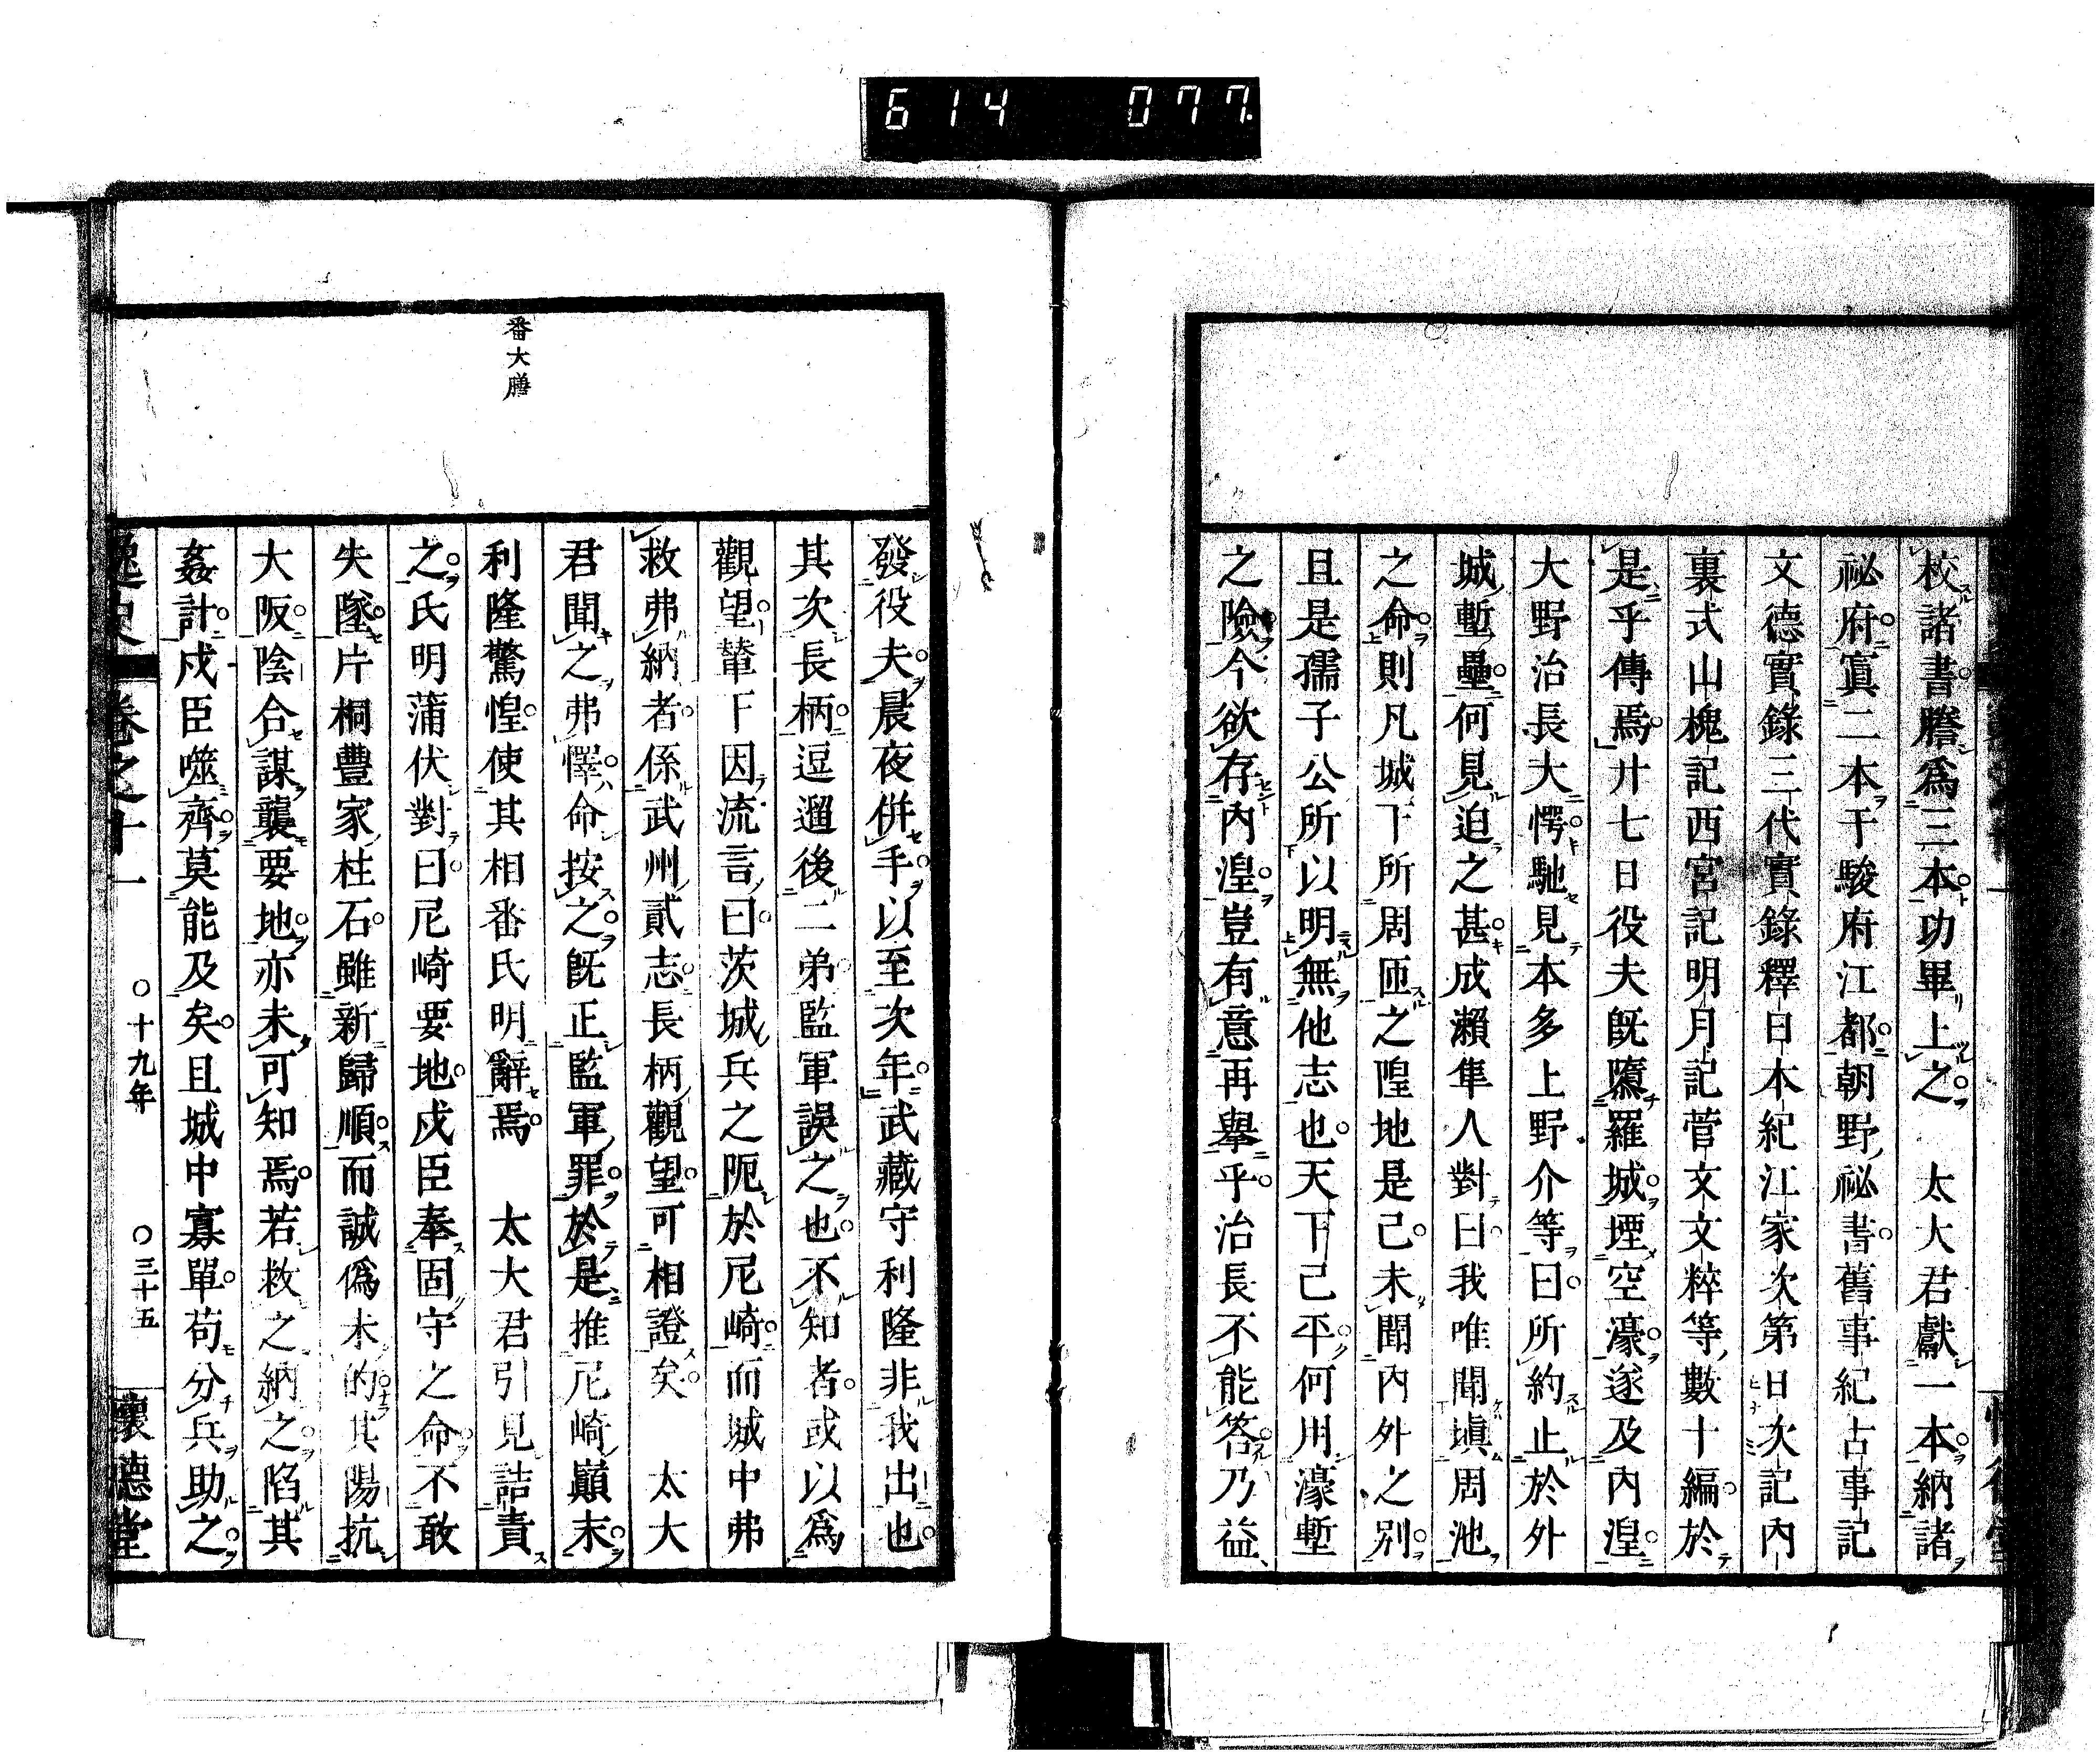 614 077.
校諸書。謄爲三本。功畢上之。 太大君獻一本。納諸
祕府。寘二本于駿府江都。朝野祕書。舊事紀古事記
文德實錄三代實錄釋日本紀江家次第日次記內
裏式山槐記西宮記明月記菅文文粹等數十編。於
是乎傳焉。廾七日役夫既隳羅城。堙空濠。遂及內湟。
大野治長大愕。馳見本多上野介等曰。所約止於外
城塹壘。何見迫之甚。成瀨隼人對曰。我唯聞塡周池
之命。則凡城下所周匝之隍地是已。未聞內外之別。
且是孺子公所以明無他志也。天下已平。何用濠塹
之險。今欲存內湟。豈有意再擧乎。治長不能答。乃益
番大膳
發役夫。晨夜併手。以至次年。武藏守利隆非我出也。
其次長柄。逗遛後二弟。監軍誤之也。不知者。或以爲
觀望。輦下因流言曰。茨城兵之阨於尼崎。而城中弗
救弗納者。係武州貳志。長柄觀望。可相證矣。 太大
君聞之弗懌。命按之。既正監軍罪。於是推尼崎顚末。
利隆驚惶。使其相番氏明辭焉。 太大君引見詰責
之。氏明蒲伏對曰。尼崎要地。戍臣奉固守之命。不敢
失墜。片桐豐家柱石。雖新歸順。而誠僞未的。其陽抗
大阪。陰合謀襲要地。亦未可知焉。若救之納之。陷其
姦計。戍臣噬齊莫能及矣。且城中寡單。苟分兵助之。
逸史 卷之十一 〇十九年 〇三十五 懷德堂